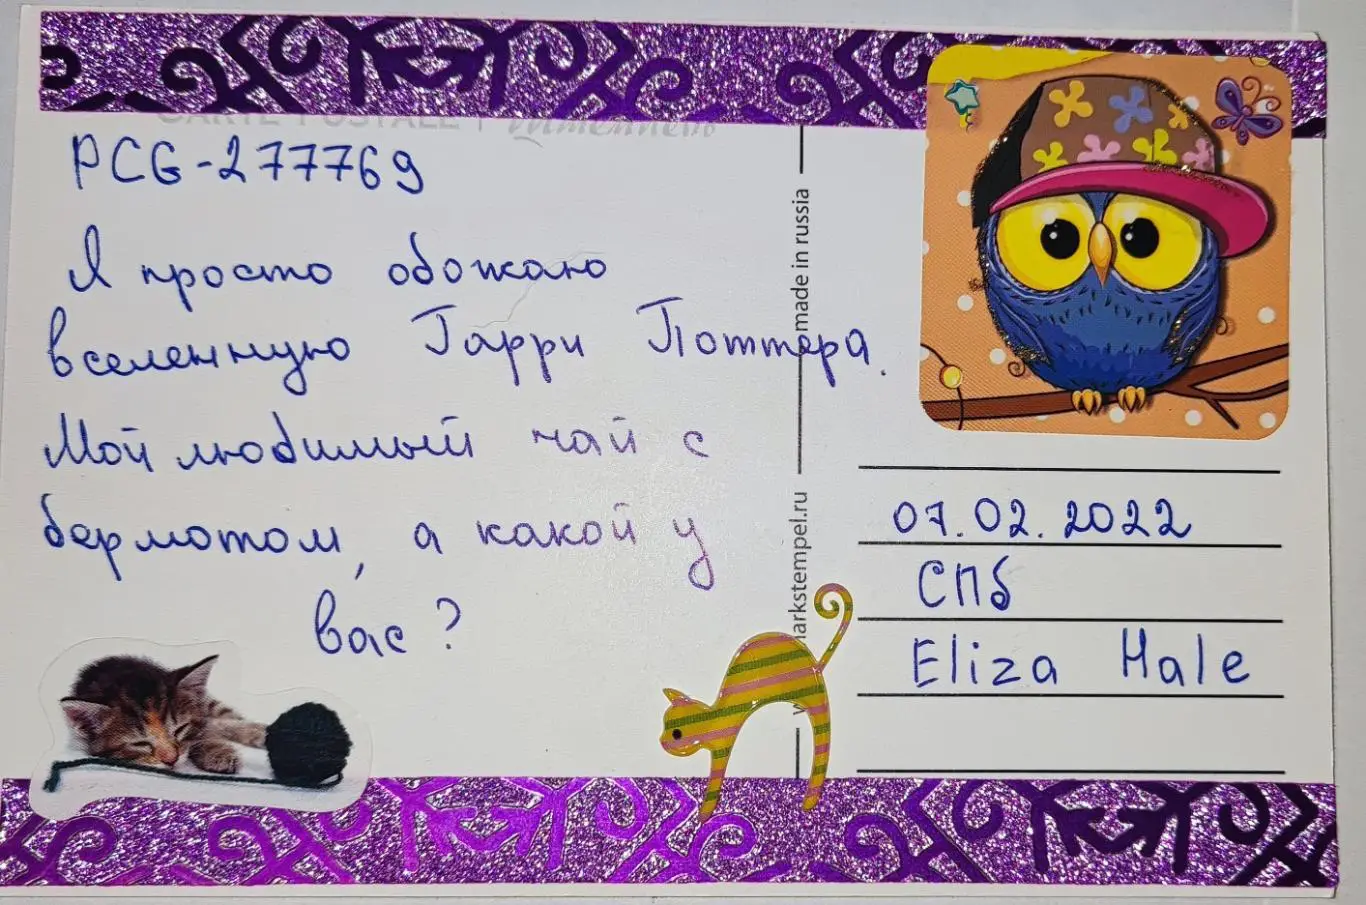 PCG-277769
Я просто обожаю
вселенную Гарри Поттера.
Мой любимый чай с
бермотом, а какой у
вас?
made in russia
07.02.2022
СПб
Eliza Hale